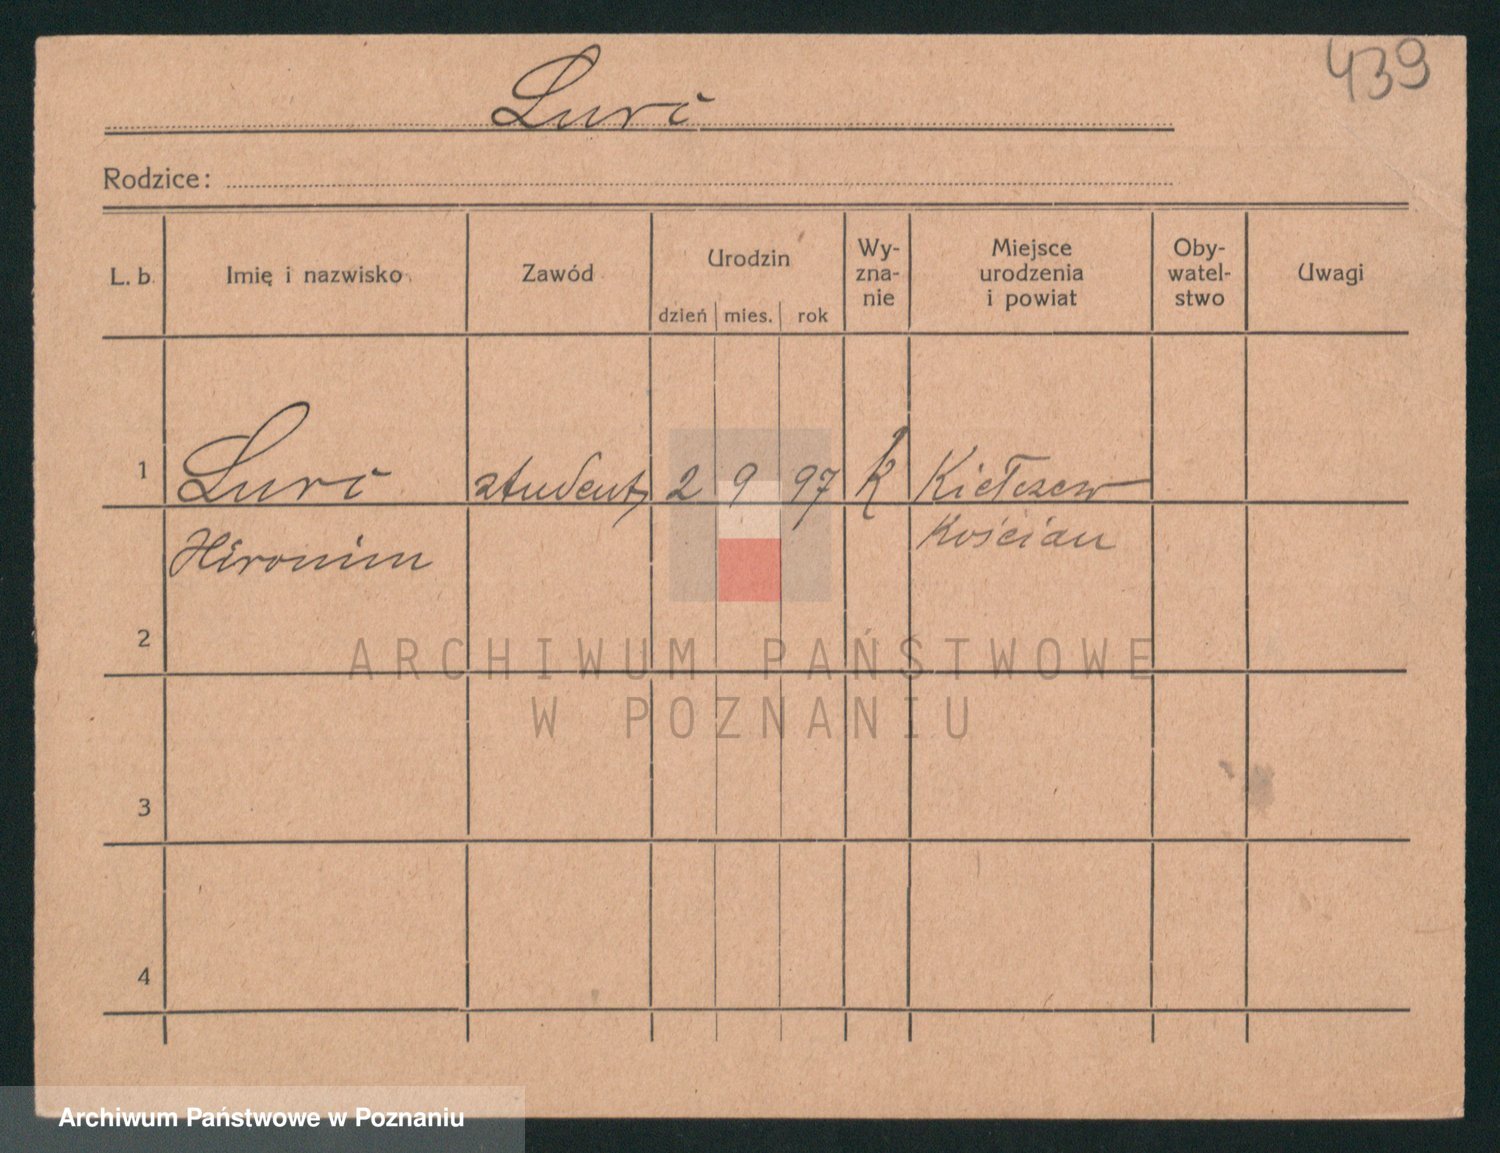 439
Lurc
Rodzice:
L. b.
Imię i nazwisko
Zawód
Urodzin
dzień
mies.
rok
Wy-
zna-
nie
Miejsce
urodzenia
i powiat
Oby-
watel-
stwo
Uwagi
1
Lurc
student
2
9
97
k
Kiełczew
Hironim
Kościan
2
ARCHIWUM PAŃSTWOWE
W POZNANIU
3
4
Archiwum Państwowe w Poznaniu